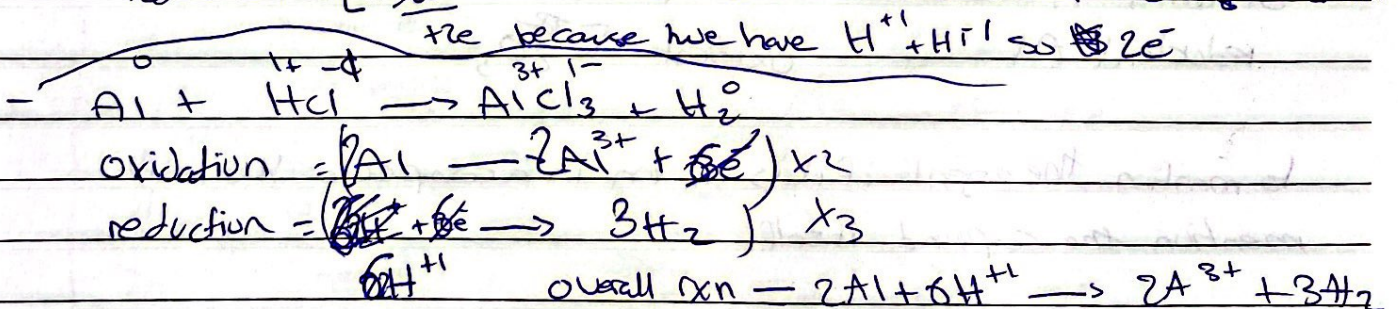 +2e because we have H⁺¹ + H⁺¹ so 2e⁻
0 1+ -1 3+ 1-
- Al + HCl → AlCl₃ + H₂⁰
oxidation = (2Al — 2Al³⁺ + 6e) x2
reduction = ( + 6e → 3H₂) x3
6H⁺¹ overall rxn — 2Al + 6H⁺¹ → 2A³⁺ + 3H₂